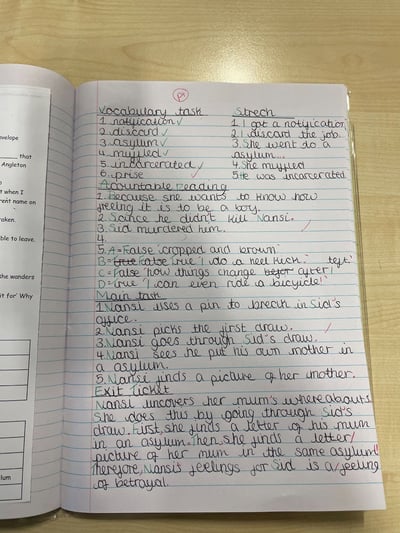 envelope
that
Angleton
t when I
rent name on
aken.
ble to leave.
she wanders
it for' Why
ylum
Vocabulary task
1. notification
2. discard
3. asylum
4. muffled
5. incarcerated
6. prise
Strech
1. I got a notification
2. I discard the job.
3. She went to a
asylum.
4. She muffled
5. He was incarcerated
Accountable reading
1. Because she wants to know how
feeling it is to be a boy.
2. Scince he didn't kill Nansi.
3. Sid murdered him.
4.
5. A= False 'cropped and brown'
B= true False True 'I do a heel kick.' left'
C = False 'how things change after!'
D= True 'I can even ride a bicycle!'
Main task
1. Nansi uses a pin to break in Sid's
office.
2. Nansi picks the first draw.
3. Nansi goes through Sid's draw.
4. Nansi sees he put his own mother in
a asylum.
5. Nansi finds a picture of her mother.
Exit Ticket
Nansi uncovers her mum's whereabouts
She does this by going through Sid's
draw. First, she finds a letter of his mum
in an asylum. Then, she finds a letter/
picture of her mum in the same asylum!
Therefore, Nansi's feelings for Sid is a feeling
of betrayal.